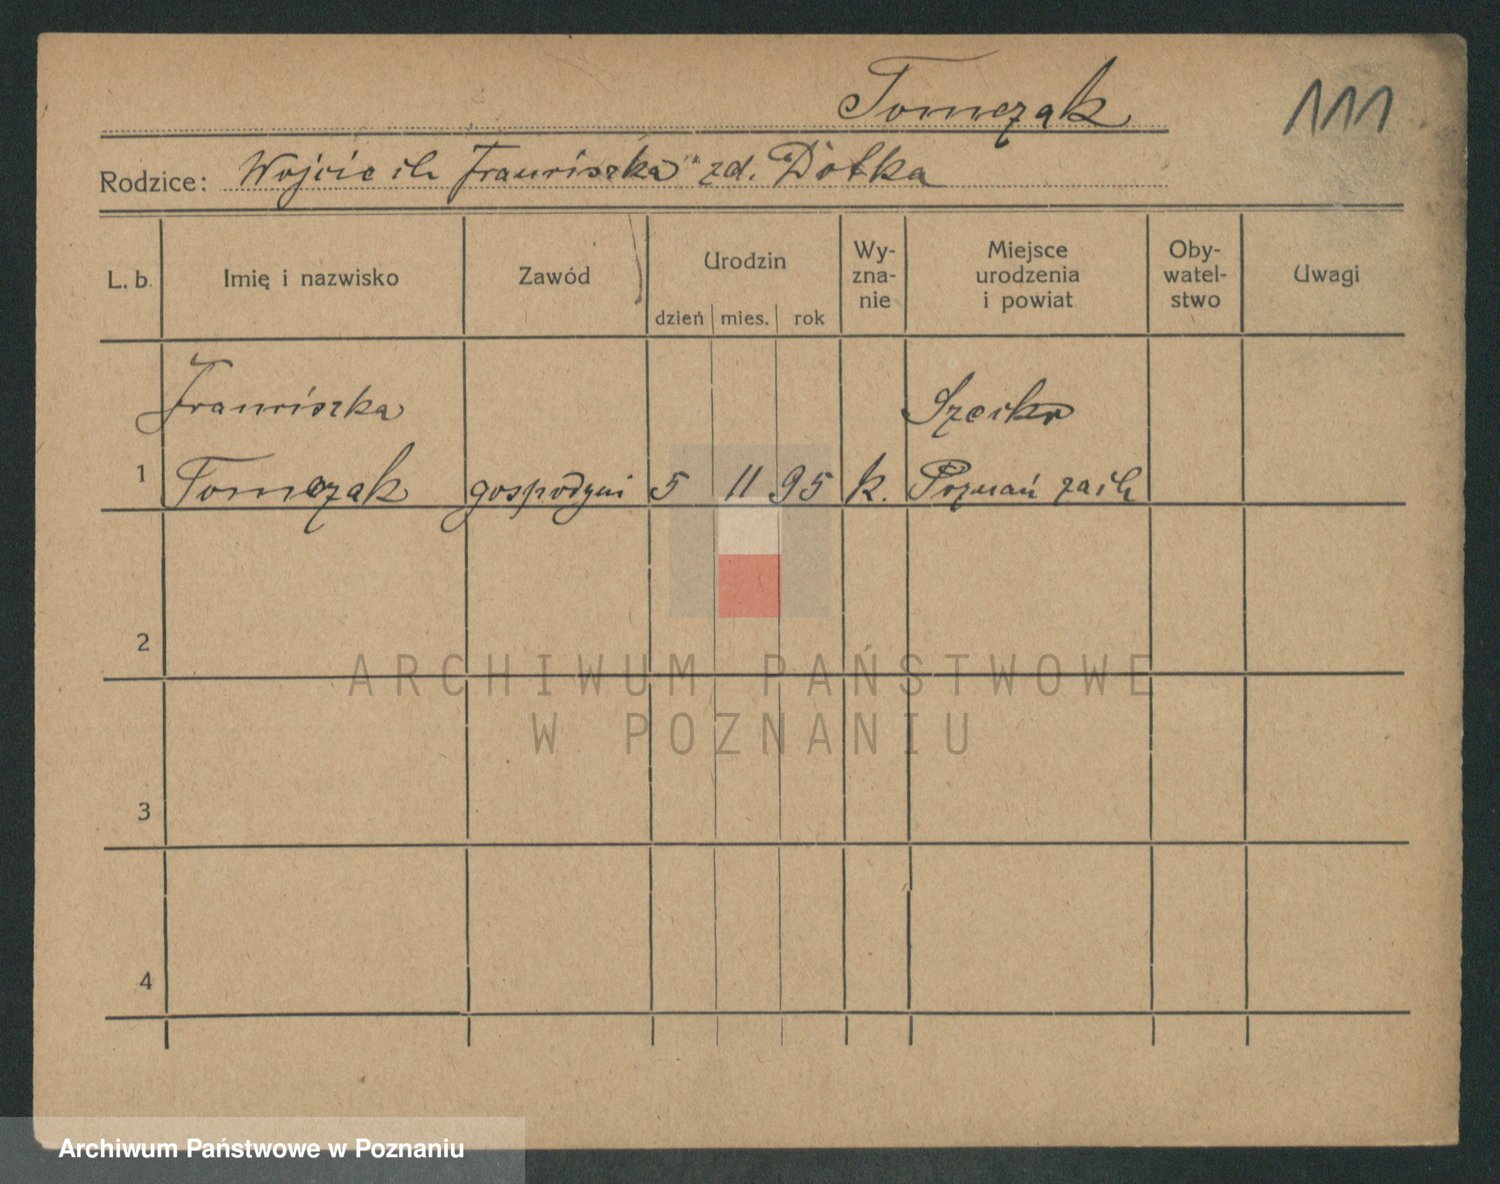 Tomczak
111
Rodzice: Wojciech Franciszka zd. Dotka
L. b. Imię i nazwisko Zawód Urodzin Wy-zna-nie Miejsce urodzenia i powiat Oby-watel-stwo Uwagi
dzień mies. rok
Franciszka
1 Tomczak gospodyni 5 11 95 k. Poznań zach
2
ARCHIWUM PAŃSTWOWE
W POZNANIU
3
4
Archiwum Państwowe w Poznaniu